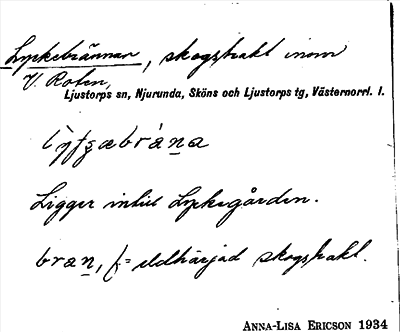 Lyckebrännan, skogstrakt inom
V. Roten,
Ljustorps sn, Njurunda, Sköns och Ljustorps tg, Västernorrl. l.
Ligger intill Lyckegården.
bran, f = eldhärjad skogstrakt.
ANNA-LISA ERICSON 1934